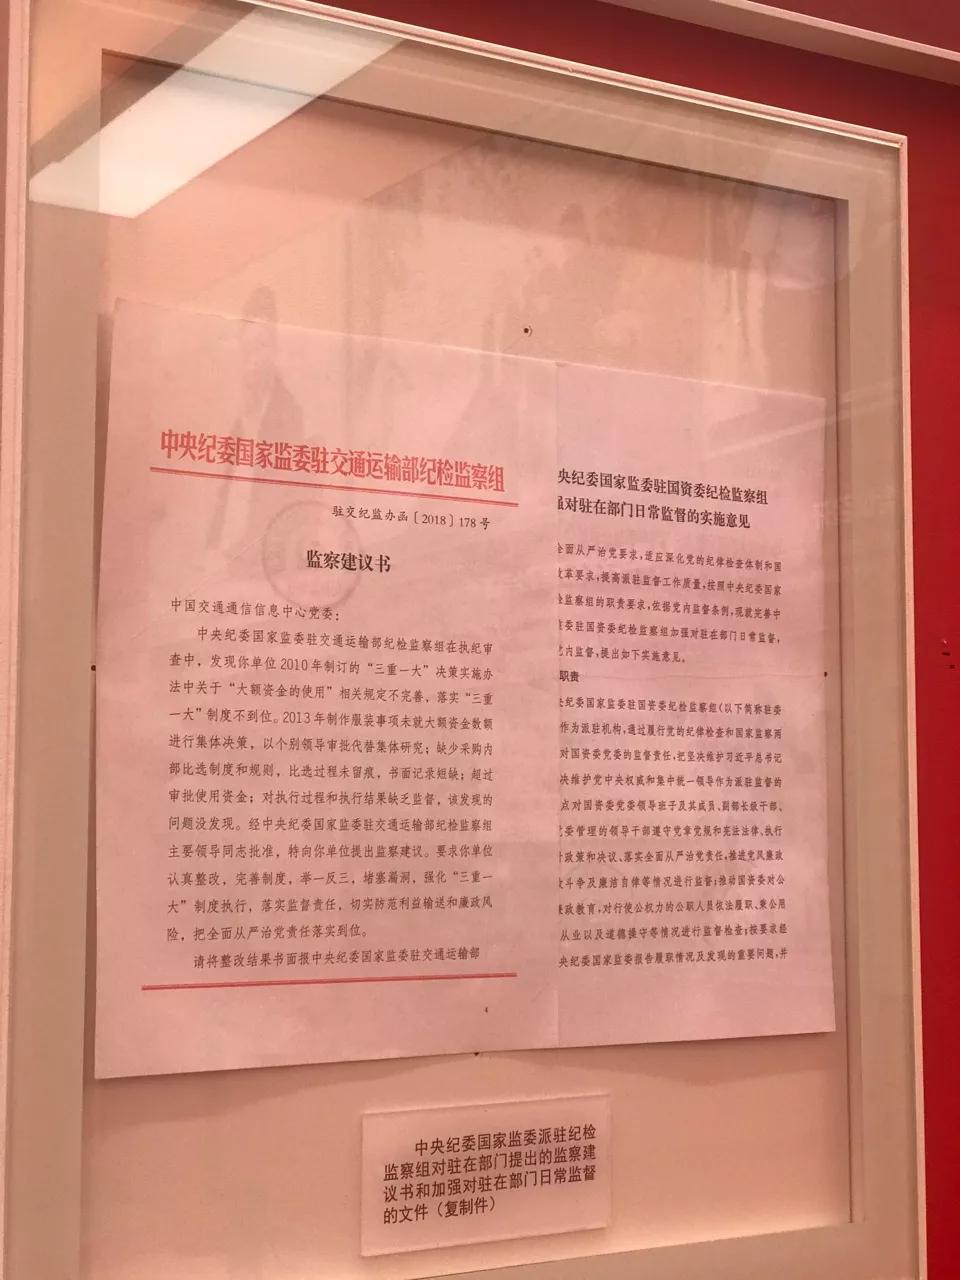 中央纪委国家监委驻交通运输部纪检监察组
驻交纪监办函〔2018〕178号
监察建议书
中国交通通信信息中心党委：
中央纪委国家监委驻交通运输部纪检监察组在执纪审
查中，发现你单位2010年制订的“三重一大”决策实施办
法中关于“大额资金的使用”相关规定不完善，落实“三重
一大”制度不到位。2013年制作服装事项未就大额资金数额
进行集体决策，以个别领导审批代替集体研究；缺少采购内
部比选制度和规则，比选过程未留痕，书面记录短缺；超过
审批使用资金；对执行过程和执行结果缺乏监督，该发现的
问题没发现。经中央纪委国家监委驻交通运输部纪检监察组
主要领导同志批准，特向你单位提出监察建议。要求你单位
认真整改，完善制度，举一反三，堵塞漏洞，强化“三重一
大”制度执行，落实监督责任，切实防范利益输送和廉政风
险，把全面从严治党责任落实到位。
请将整改结果书面报中央纪委国家监委驻交通运输部
央纪委国家监委驻国资委纪检监察组
强对驻在部门日常监督的实施意见
全面从严治党要求，适应深化党的纪律检查体制和国
改革要求，提高派驻监督工作质量，按照中央纪委国家
检监察组的职责要求，依据党内监督条例，现就完善中
监委驻国资委纪检监察组加强对驻在部门日常监督，
党内监督，提出如下实施意见。
职责
央纪委国家监委驻国资委纪检监察组（以下简称驻委
作为派驻机构，通过履行党的纪律检查和国家监察两
对国资委党委的监督责任，把坚决维护习近平总书记
决维护党中央权威和集中统一领导作为派驻监督的
点对国资委党委领导班子及其成员、副部长级干部、
党委管理的领导干部遵守党章党规和宪法法律、执行
政策和决议、落实全面从严治党责任，推进党风廉政
斗争及廉洁自律等情况进行监督；推动国资委对公
廉政教育，对行使公权力的公职人员依法履职、秉公用
从业以及道德操守等情况进行监督检查；按要求经
央纪委国家监委报告履职情况及发现的重要问题，并
中央纪委国家监委派驻纪检
监察组对驻在部门提出的监察建
议书和加强对驻在部门日常监督
的文件（复制件）